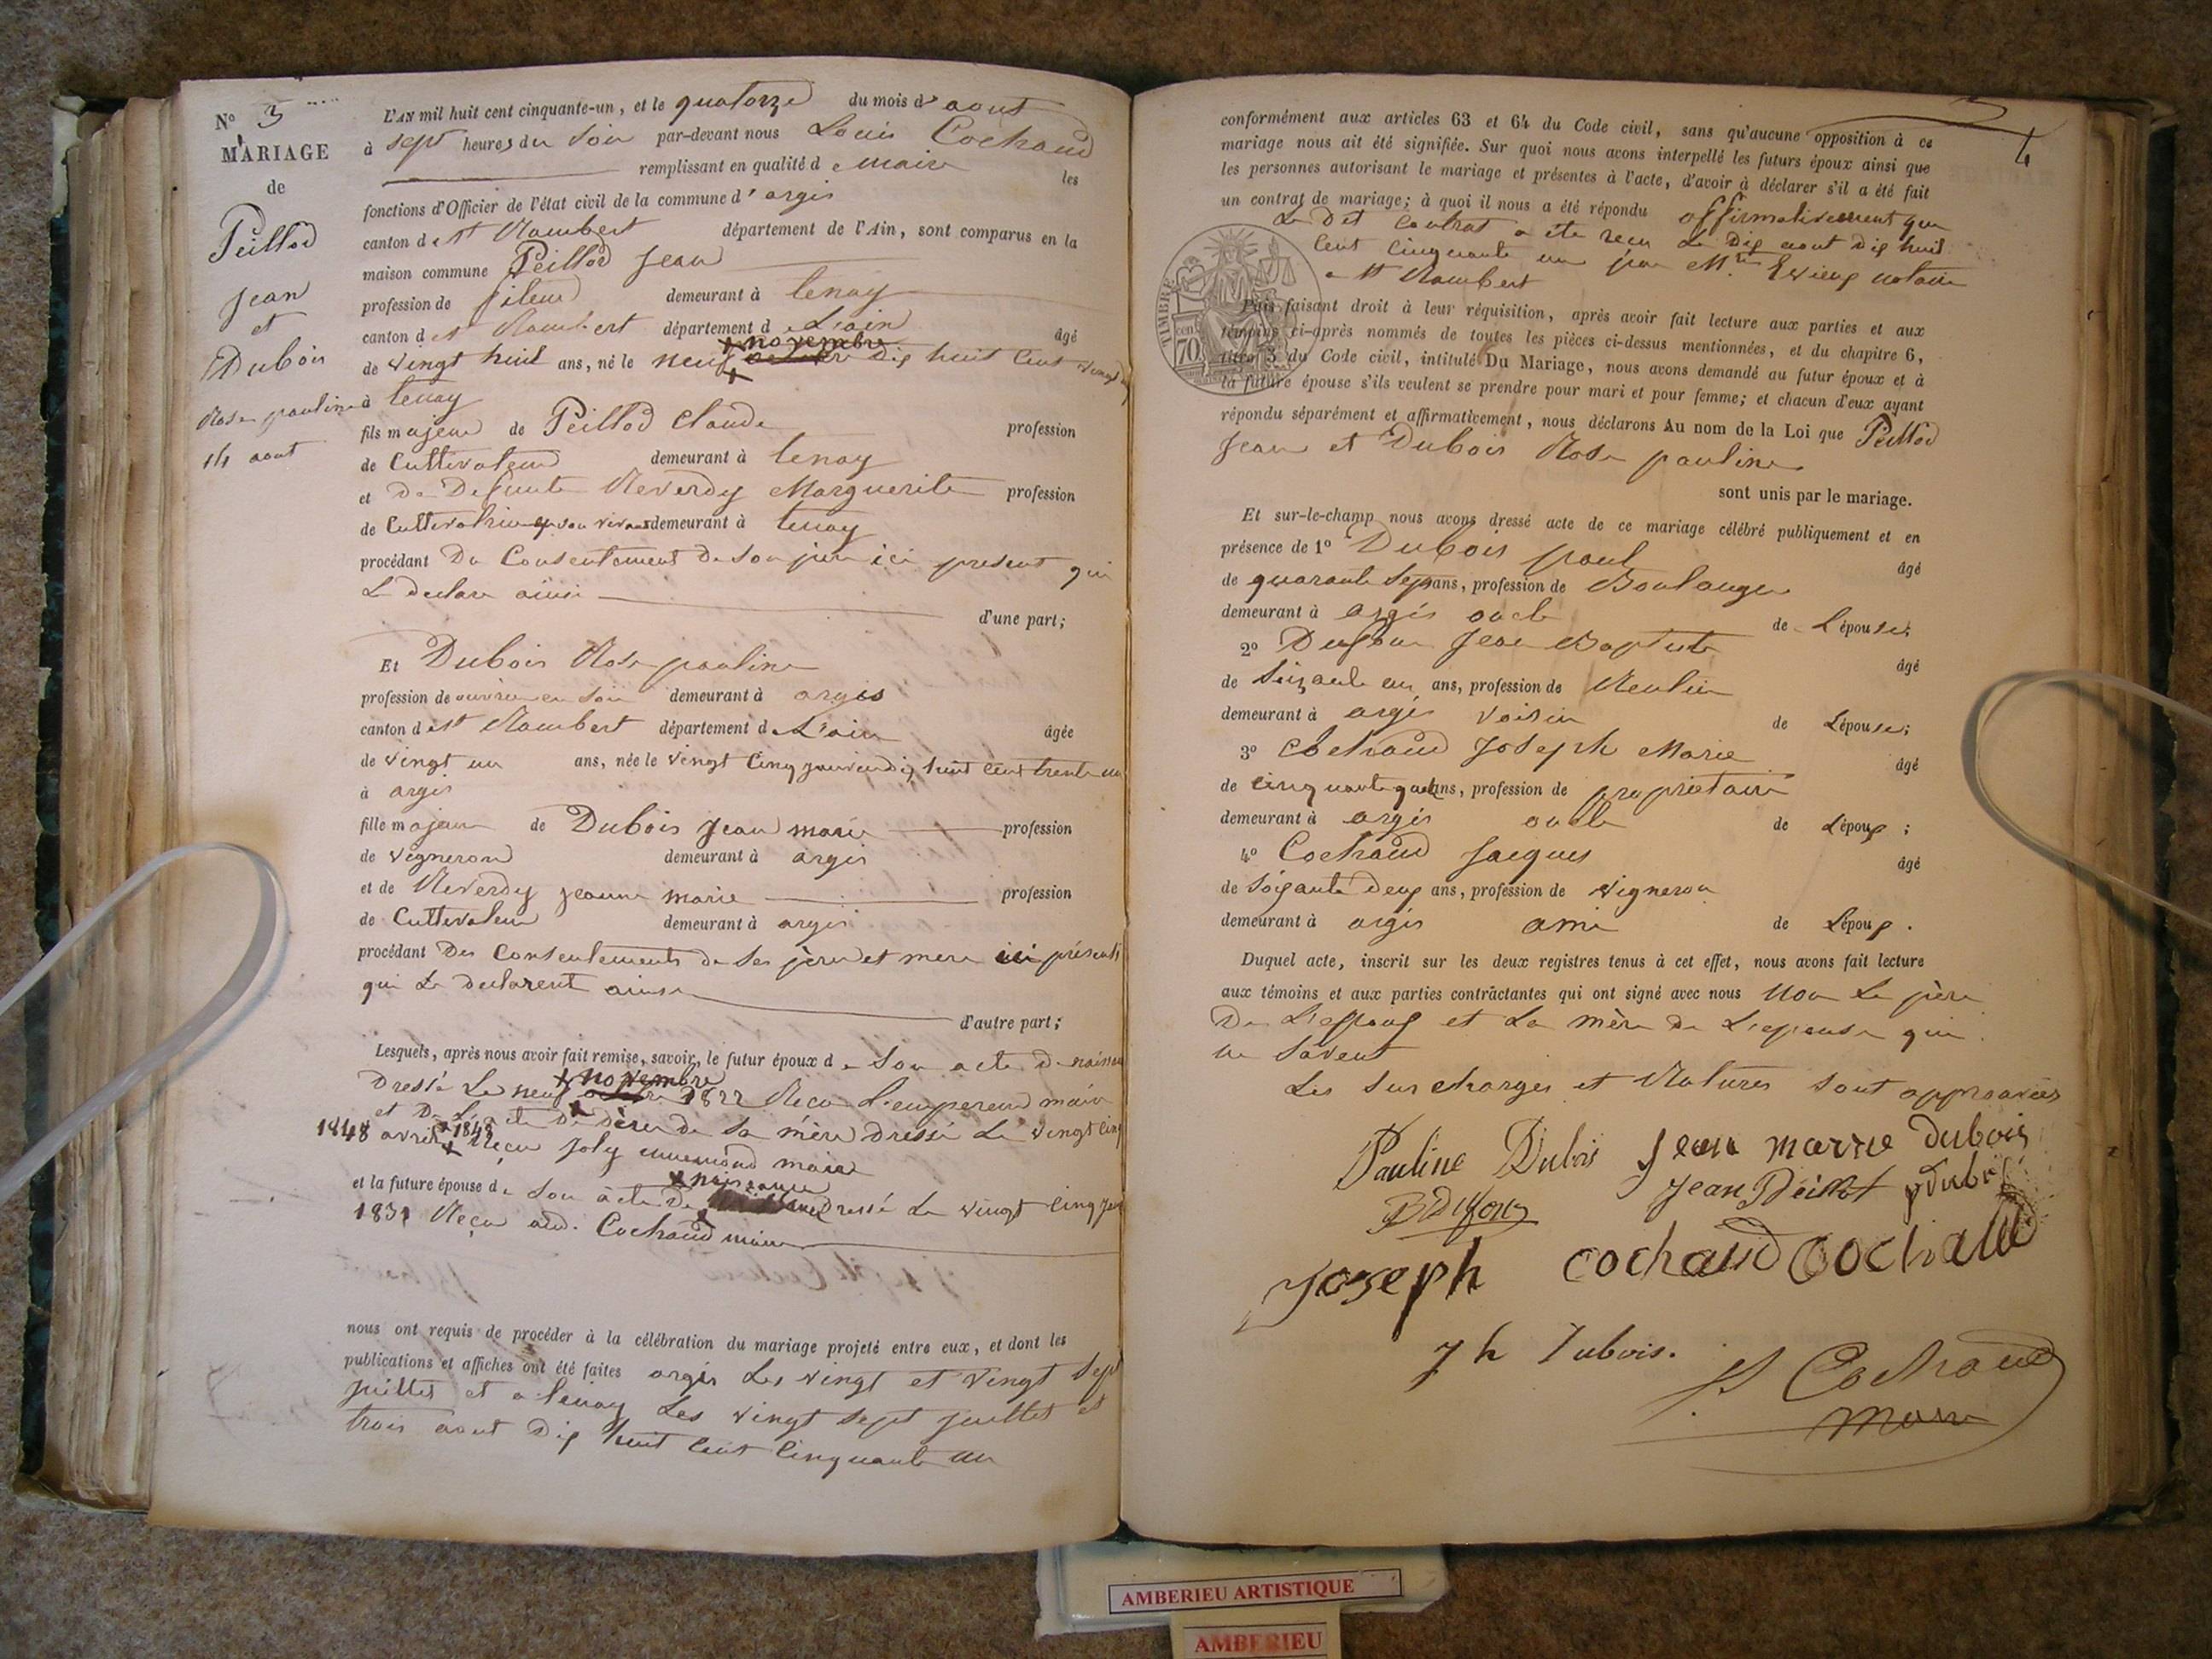 N° 3
MARIAGE
de
Peillod
Jean
et
Dubois
Rose pauline
14 aout
L'AN mil huit cent cinquante-un, et le quatorze du mois d'aout
à sept heures du soir par-devant nous Louis Cochaud
remplissant en qualité de maire les
fonctions d'Officier de l'état civil de la commune d'argis
canton de st Rambert département de l'Ain, sont comparus en la
maison commune Peillod Jean
profession de fileur demeurant à tenay
canton de st Rambert département de L'ain âgé
+ novembre
de vingt huit ans, né le neuf octobre dix huit cent vingt
à tenay
fils majeur de Peillod Claude profession
de Cultivateur demeurant à tenay
et de Defunte Reverdy Marguerite profession
de Cultivatrice en son vivant demeurant à tenay
procédant Du Consentement de son père ici présent qui
Le declare ainsi d'une part;
Et Dubois Rose pauline
profession de ouvrière en soie demeurant à argis
canton de st Rambert département de L'ain âgée
de vingt un ans, née le vingt cinq janvier dix huit cent trente un
à argis
fille majeure de Dubois Jean marie profession
de vigneron demeurant à argis
et de Reverdy jeanne marie profession
de Cultivateur demeurant à argis
procédant Des Consentements de ses père et mere ici présents
qui Le declarent ainsi
d'autre part;
Lesquels, après nous avoir fait remise, savoir, le futur époux de Son acte de naissan
+ novembre
Dressé Le neuf octobre 1822 Reçu L'empereur maire
et De L'acte De Décès de Sa mère Dressé Le vingt cinq
1848 avril 1848 Reçu Joly maire
+ naissance
et la future épouse de Son acte De Dressé Le vingt cinq jan
1831 Reçu Cochaud maire
nous ont requis de procéder à la célébration du mariage projeté entre eux, et dont les
publications et affiches ont été faites argis Les vingt et vingt sept
juillet et a tenay Les vingt sept juillet et
trois aout dix huit cent cinquante un
4
conformément aux articles 63 et 64 du Code civil, sans qu'aucune opposition à ce
mariage nous ait été signifiée. Sur quoi nous avons interpellé les futurs époux ainsi que
les personnes autorisant le mariage et présentes à l'acte, d'avoir à déclarer s'il a été fait
un contrat de mariage; à quoi il nous a été répondu affirmativement que
Le Dit Contrat a ete recu Le Dix aout dix huit
Cent Cinquante un par Me notaire
a st Rambert
TIMBRE
70 cent
Puis faisant droit à leur réquisition, après avoir fait lecture aux parties et aux
témoins ci-après nommés de toutes les pièces ci-dessus mentionnées, et du chapitre 6,
titre 5 du Code civil, intitulé Du Mariage, nous avons demandé au futur époux et à
la future épouse s'ils veulent se prendre pour mari et pour femme; et chacun d'eux ayant
répondu séparément et affirmativement, nous déclarons Au nom de la Loi que Peillod
Jean et Dubois Rose pauline
sont unis par le mariage.
Et sur-le-champ nous avons dressé acte de ce mariage célébré publiquement et en
présence de 1° Dubois paul âgé
de quarante sept ans, profession de Boulanger
demeurant à argis oncle de Lépouse;
2° Dufour Jean Baptiste âgé
de Soixante un ans, profession de Rentier
demeurant à argis voisin de Lépouse;
3° Cochaud Joseph Marie âgé
de cinquante quatre ans, profession de propriétaire
demeurant à argis oncle de Lépoux;
4° Cochaud Jacques âgé
de soixante deux ans, profession de vigneron
demeurant à argis ami de Lépoux.
Duquel acte, inscrit sur les deux registres tenus à cet effet, nous avons fait lecture
aux témoins et aux parties contractantes qui ont signé avec nous Non Le père
De L'epoux et La mère de L'epouse qui
ne savent
Les Surcharges et Ratures sont approuvées
Pauline Dubois Jean marie dubois
BDufour Jean Peillot pdubois
Joseph cochaud cochaud
Jh Dubois.
L Cochaud
Maire
AMBERIEU ARTISTIQUE
AMBERIEU